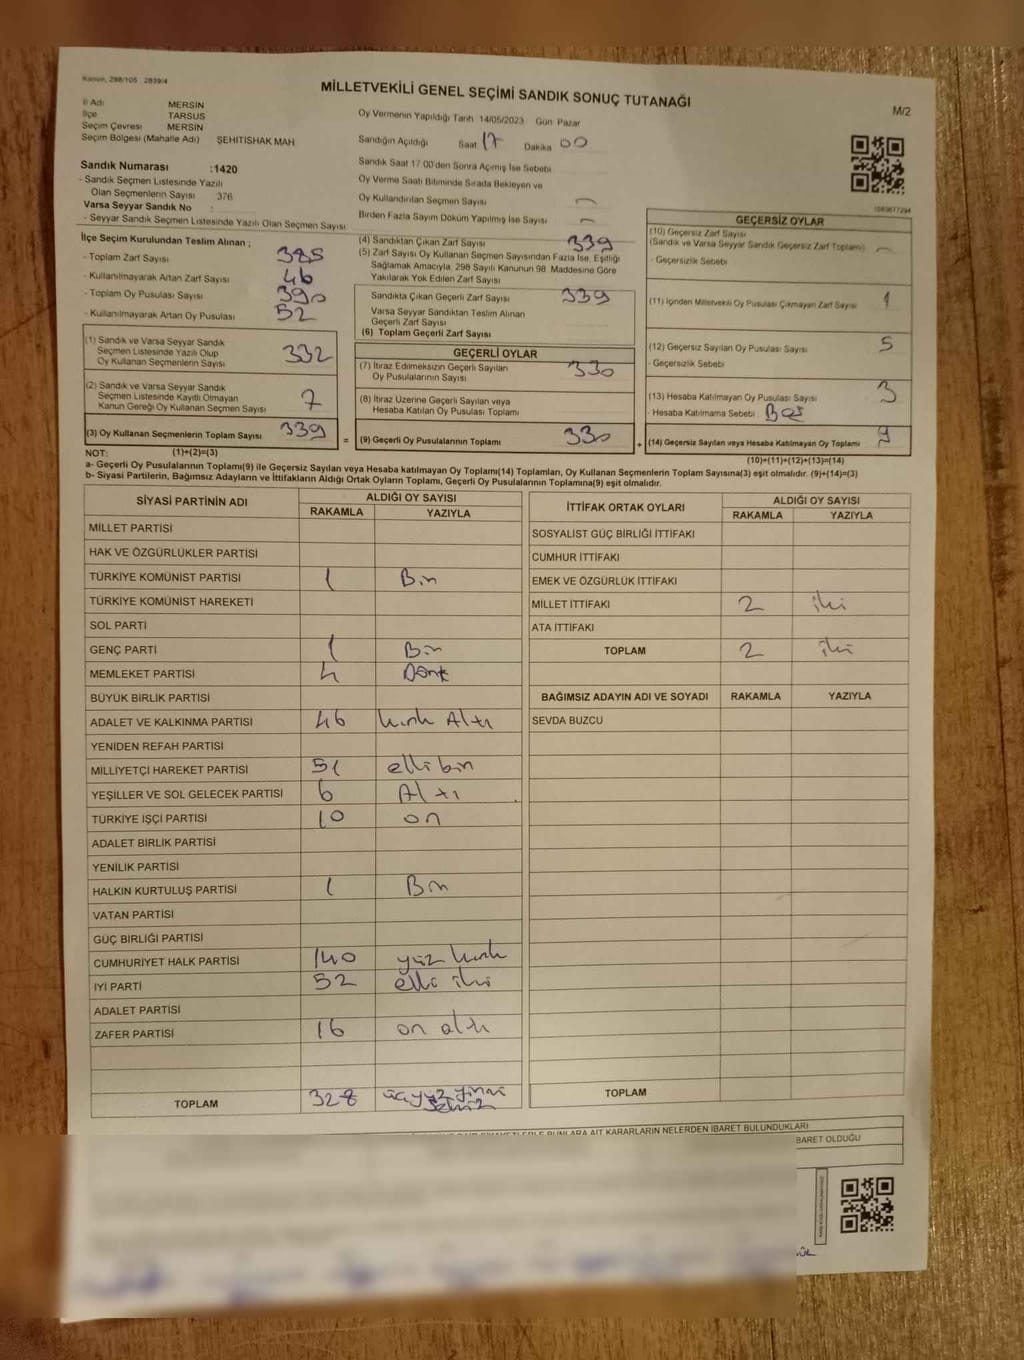 Kanun, 298/105 , 2839/4
MİLLETVEKİLİ GENEL SEÇİMİ SANDIK SONUÇ TUTANAĞI
M/2
İl Adı MERSİN
İlçe TARSUS
Seçim Çevresi MERSİN
Seçim Bölgesi (Mahalle Adı) ŞEHİTİSHAK MAH
Sandık Numarası :1420
- Sandık Seçmen Listesinde Yazılı
Olan Seçmenlerin Sayısı 376
Varsa Seyyar Sandık No :
- Seyyar Sandık Seçmen Listesinde Yazılı Olan Seçmen Sayısı
Oy Vermenin Yapıldığı Tarih 14/05/2023 Gün Pazar
Sandığın Açıldığı Saat 17 Dakika 00
Sandık Saat 17 00'den Sonra Açımış İse Sebebi
Oy Verme Saati Bitiminde Sırada Bekleyen ve
Oy Kullandırılan Seçmen Sayısı —
Birden Fazla Sayım Döküm Yapılmış İse Sayısı —
İlçe Seçim Kurulundan Teslim Alınan ;
- Toplam Zarf Sayısı 385
- Kullanılmayarak Artan Zarf Sayısı 46
- Toplam Oy Pusulası Sayısı 390
- Kullanılmayarak Artan Oy Pusulası 52
(1) Sandık ve Varsa Seyyar Sandık
Seçmen Listesinde Yazılı Olup
Oy Kullanan Seçmenlerin Sayısı 332
(2) Sandık ve Varsa Seyyar Sandık
Seçmen Listesinde Kayıtlı Olmayan
Kanun Gereği Oy Kullanan Seçmen Sayısı 7
(3) Oy Kullanan Seçmenlerin Toplam Sayısı 339
(4) Sandıktan Çıkan Zarf Sayısı 339
(5) Zarf Sayısı Oy Kullanan Seçmen Sayısından Fazla İse, Eşitliği
Sağlamak Amacıyla, 298 Sayılı Kanunun 98. Maddesine Göre
Yakılarak Yok Edilen Zarf Sayısı
Sandıkta Çıkan Geçerli Zarf Sayısı 339
Varsa Seyyar Sandıktan Teslim Alınan
Geçerli Zarf Sayısı
(6) Toplam Geçerli Zarf Sayısı
GEÇERLİ OYLAR
(7) İtiraz Edilmeksizin Geçerli Sayılan
Oy Pusulalarının Sayısı 330
(8) İtiraz Üzerine Geçerli Sayılan veya
Hesaba Katılan Oy Pusulası Toplamı
= (9) Geçerli Oy Pusulalarının Toplamı 330
GEÇERSİZ OYLAR
(10) Geçersiz Zarf Sayısı
(Sandık ve Varsa Seyyar Sandık Geçersiz Zarf Toplamı) —
- Geçersizlik Sebebi
(11) İçinden Milletvekili Oy Pusulası Çıkmayan Zarf Sayısı 1
(12) Geçersiz Sayılan Oy Pusulası Sayısı 5
- Geçersizlik Sebebi
(13) Hesaba Katılmayan Oy Pusulası Sayısı 3
- Hesaba Katılmama Sebebi Boş
+ (14) Geçersiz Sayılan veya Hesaba Katılmayan Oy Toplamı 9
NOT: (1)+(2)=(3) (10)+(11)+(12)+(13)=(14)
a- Geçerli Oy Pusulalarının Toplamı(9) ile Geçersiz Sayılan veya Hesaba katılmayan Oy Toplamı(14) Toplamları, Oy Kullanan Seçmenlerin Toplam Sayısına(3) eşit olmalıdır. (9)+(14)=(3)
b- Siyasi Partilerin, Bağımsız Adayların ve İttifakların Aldığı Ortak Oyların Toplamı, Geçerli Oy Pusulalarının Toplamına(9) eşit olmalıdır.
SİYASİ PARTİNİN ADI ALDIĞI OY SAYISI
RAKAMLA YAZIYLA
MİLLET PARTİSİ
HAK VE ÖZGÜRLÜKLER PARTİSİ
TÜRKİYE KOMÜNİST PARTİSİ 1 Bir
TÜRKİYE KOMÜNİST HAREKETİ
SOL PARTİ
GENÇ PARTİ 1 Bir
MEMLEKET PARTİSİ 4 Dört
BÜYÜK BİRLİK PARTİSİ
ADALET VE KALKINMA PARTİSİ 46 kırk Altı
YENİDEN REFAH PARTİSİ
MİLLİYETÇİ HAREKET PARTİSİ 51 elli bir
YEŞİLLER VE SOL GELECEK PARTİSİ 6 Altı
TÜRKİYE İŞÇİ PARTİSİ 10 on
ADALET BİRLİK PARTİSİ
YENİLİK PARTİSİ
HALKIN KURTULUŞ PARTİSİ 1 Bir
VATAN PARTİSİ
GÜÇ BİRLİĞİ PARTİSİ
CUMHURİYET HALK PARTİSİ 140 yüz kırk
İYİ PARTİ 52 elli iki
ADALET PARTİSİ
ZAFER PARTİSİ 16 on altı
TOPLAM 328 üçyüz yirmi
sekiz
İTTİFAK ORTAK OYLARI ALDIĞI OY SAYISI
RAKAMLA YAZIYLA
SOSYALİST GÜÇ BİRLİĞİ İTTİFAKI
CUMHUR İTTİFAKI
EMEK VE ÖZGÜRLÜK İTTİFAKI
MİLLET İTTİFAKI 2 iki
ATA İTTİFAKI
TOPLAM 2 iki
BAĞIMSIZ ADAYIN ADI VE SOYADI RAKAMLA YAZIYLA
SEVDA BUZCU
TOPLAM
BUNLARA AİT KARARLARIN NELERDEN İBARET BULUNDUKLARI
BARET OLDUĞU